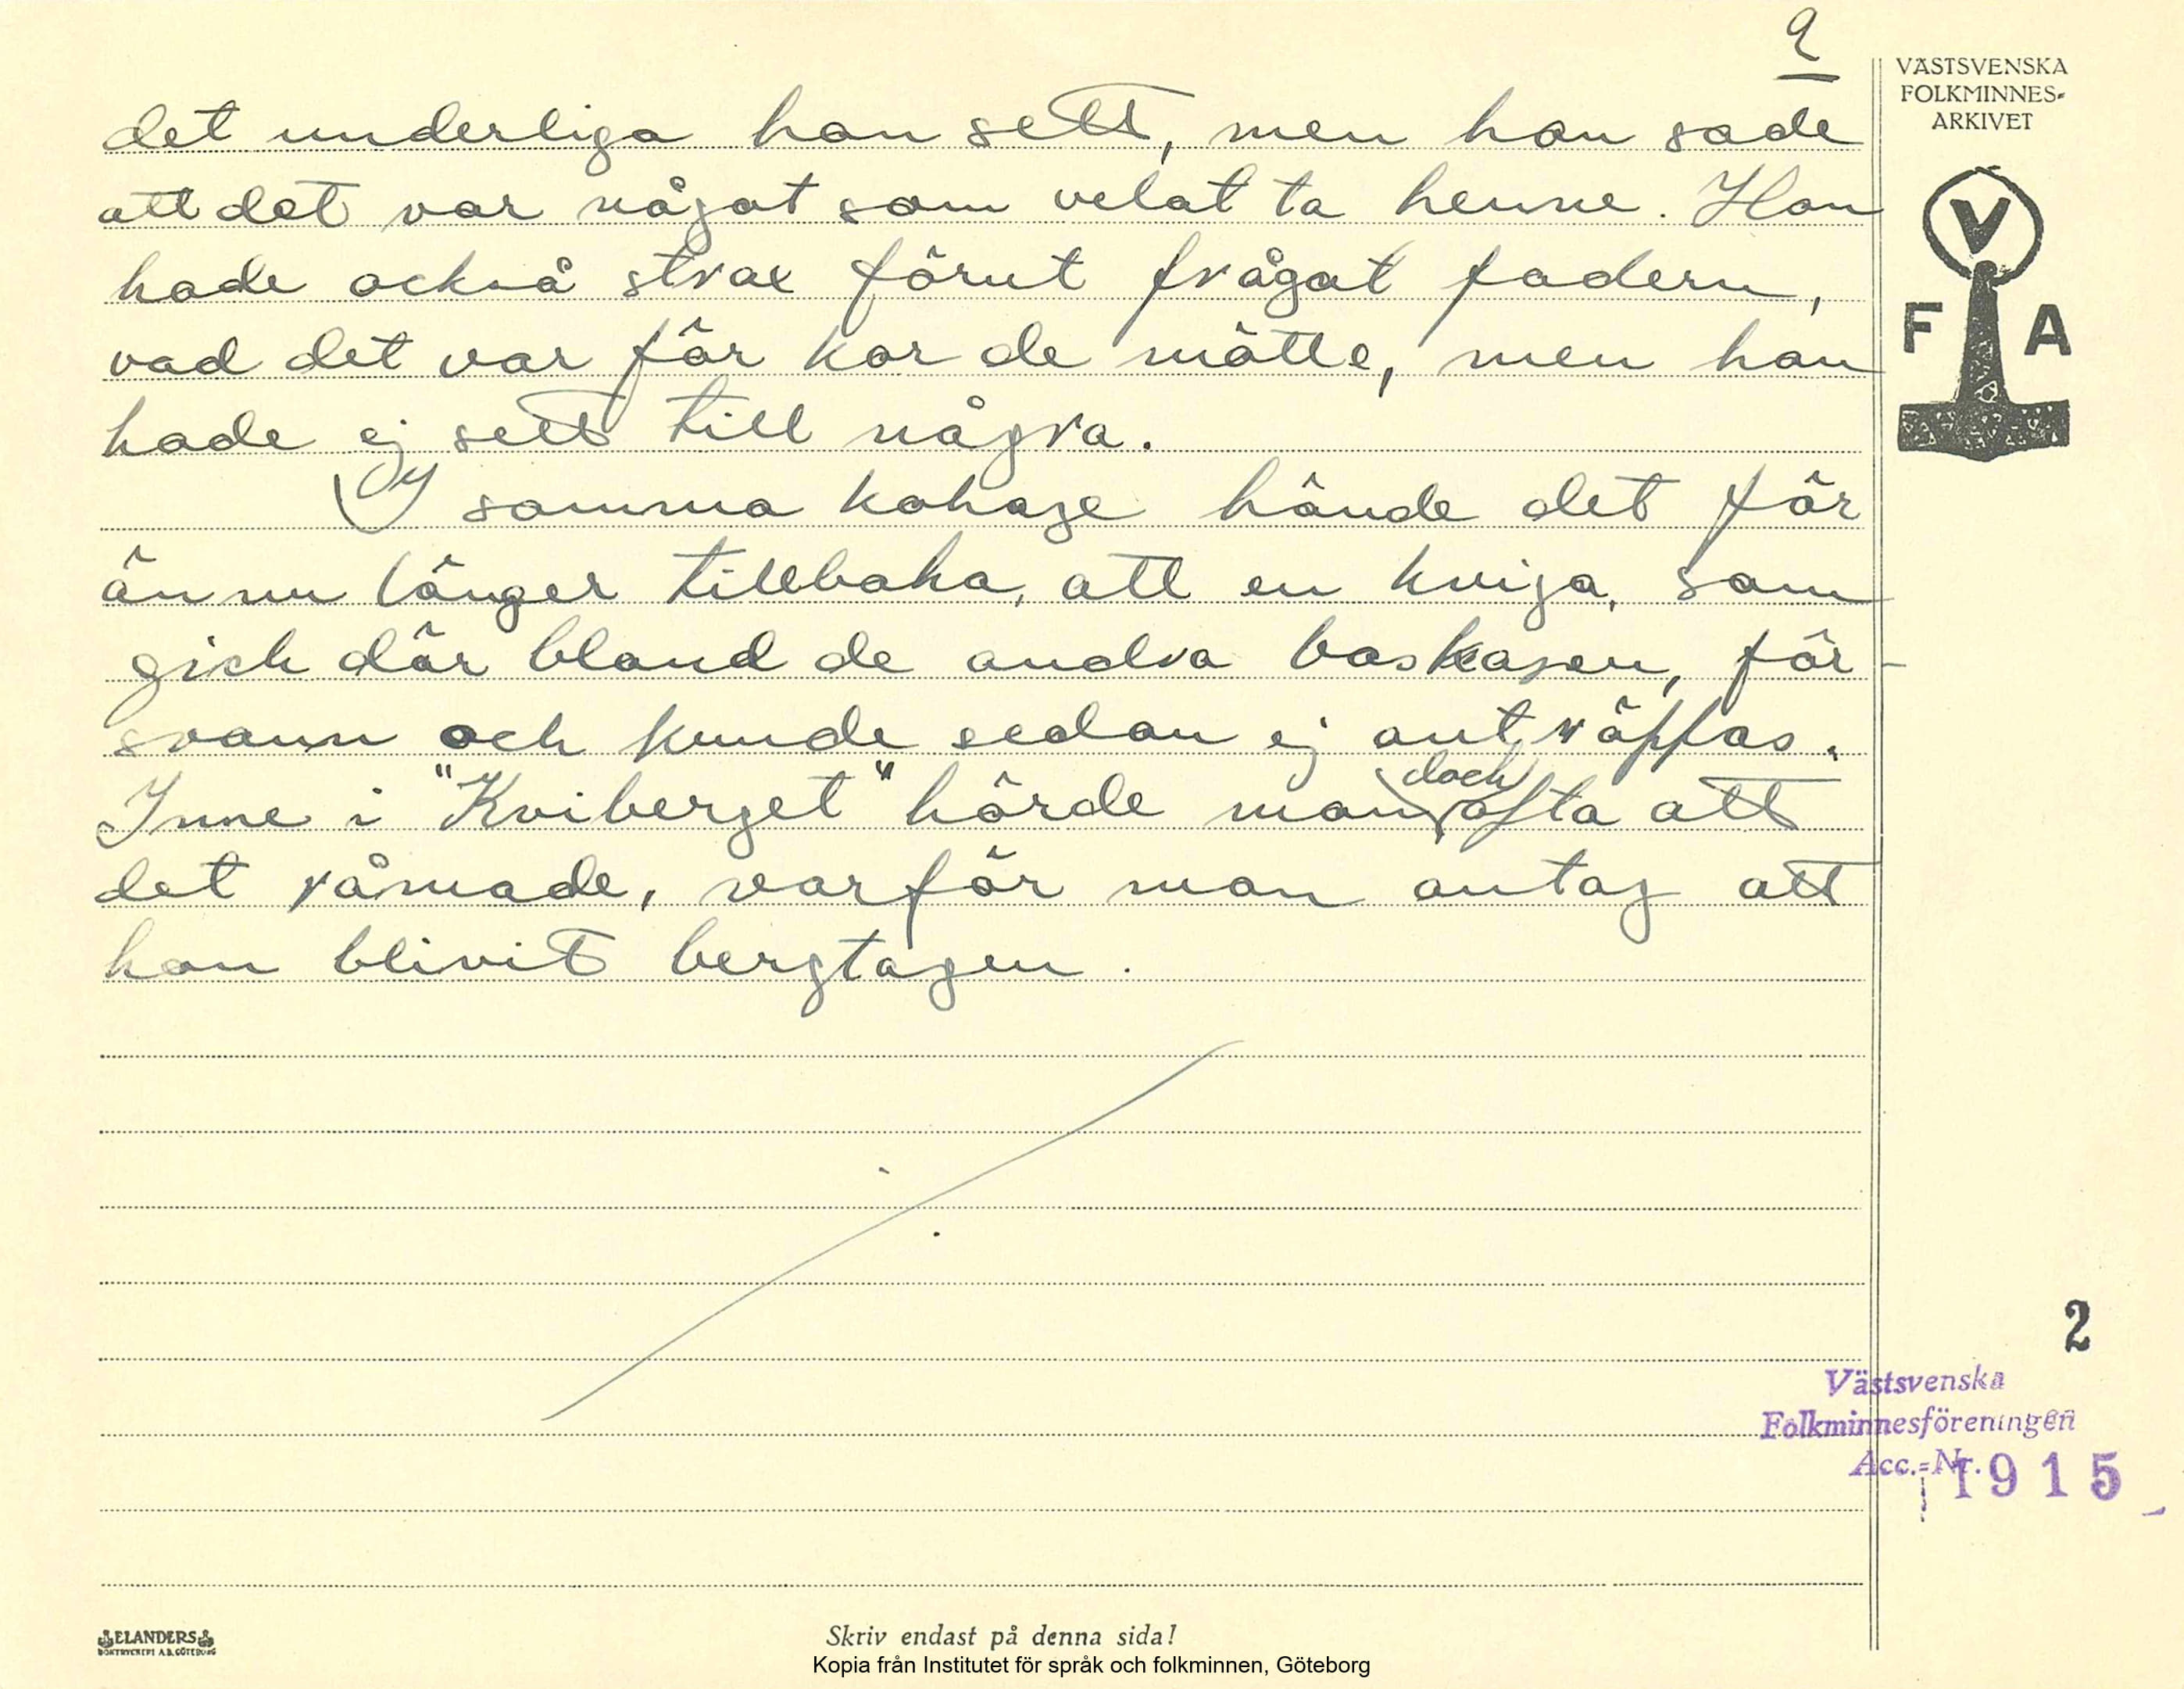 2
VÄSTSVENSKA
FOLKMINNES-
ARKIVET
V
F A
det underliga hon sett, men hon sade
att det var något som velat ta henne. Hon
hade också strax förut frågat fadern,
vad det var för kor de mötte, men han
hade ej sett till några.
I samma kohage hände det för
ännu länger tillbaka, att en kviga, som
gick där bland de andra boskapen, för-
svann och kunde sedan ej anträffas.
Inne i "Kviberget" hörde man dock ofta att
det råmade, varför man antog att
hon blivit bergtagen.
2
Västsvenska
Folkminnesföreningen
Acc.-Nr. 1915
ELANDERS
BOKTRYCKERI A.B. GÖTEBORG
Skriv endast på denna sida!
Kopia från Institutet för språk och folkminnen, Göteborg